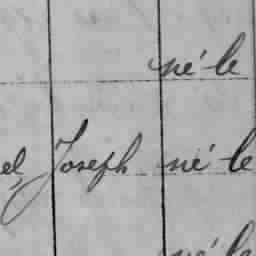 né le
el Joseph né le
né le